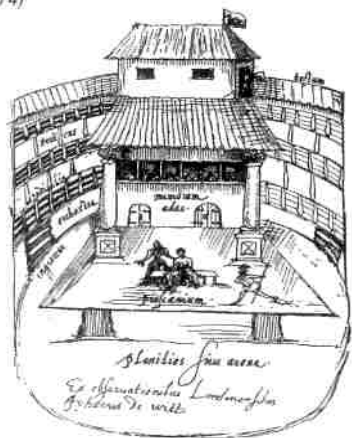 tectum
porticus
orchestra
mimorum
ædes
ingressus
proscænium
planities siue arena
Ex obseruationibus Londinensibus
de witt